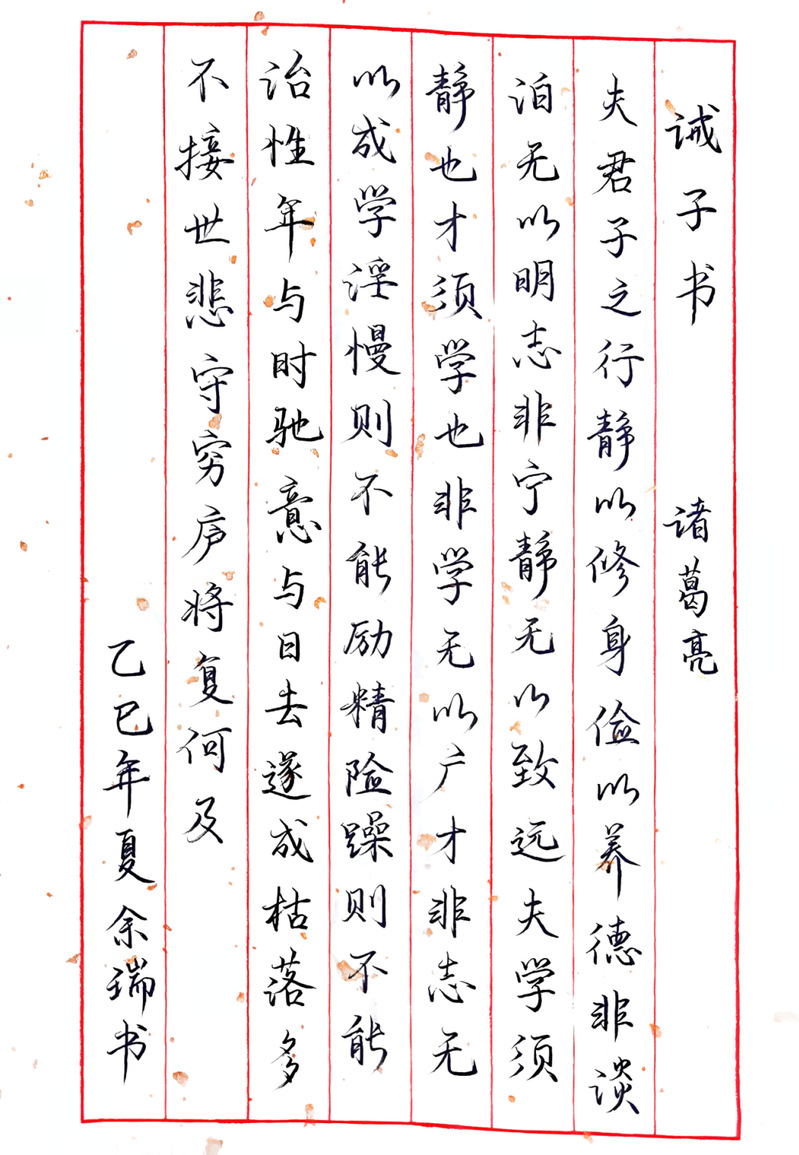 诫子书 诸葛亮
夫君子之行静以修身俭以养德非谈
泊无以明志非宁静无以致远夫学须
静也才须学也非学无以广才非志无
以成学淫慢则不能励精险躁则不能
治性年与时驰意与日去遂成枯落多
不接世悲守穷庐将复何及
乙巳年夏余瑞书